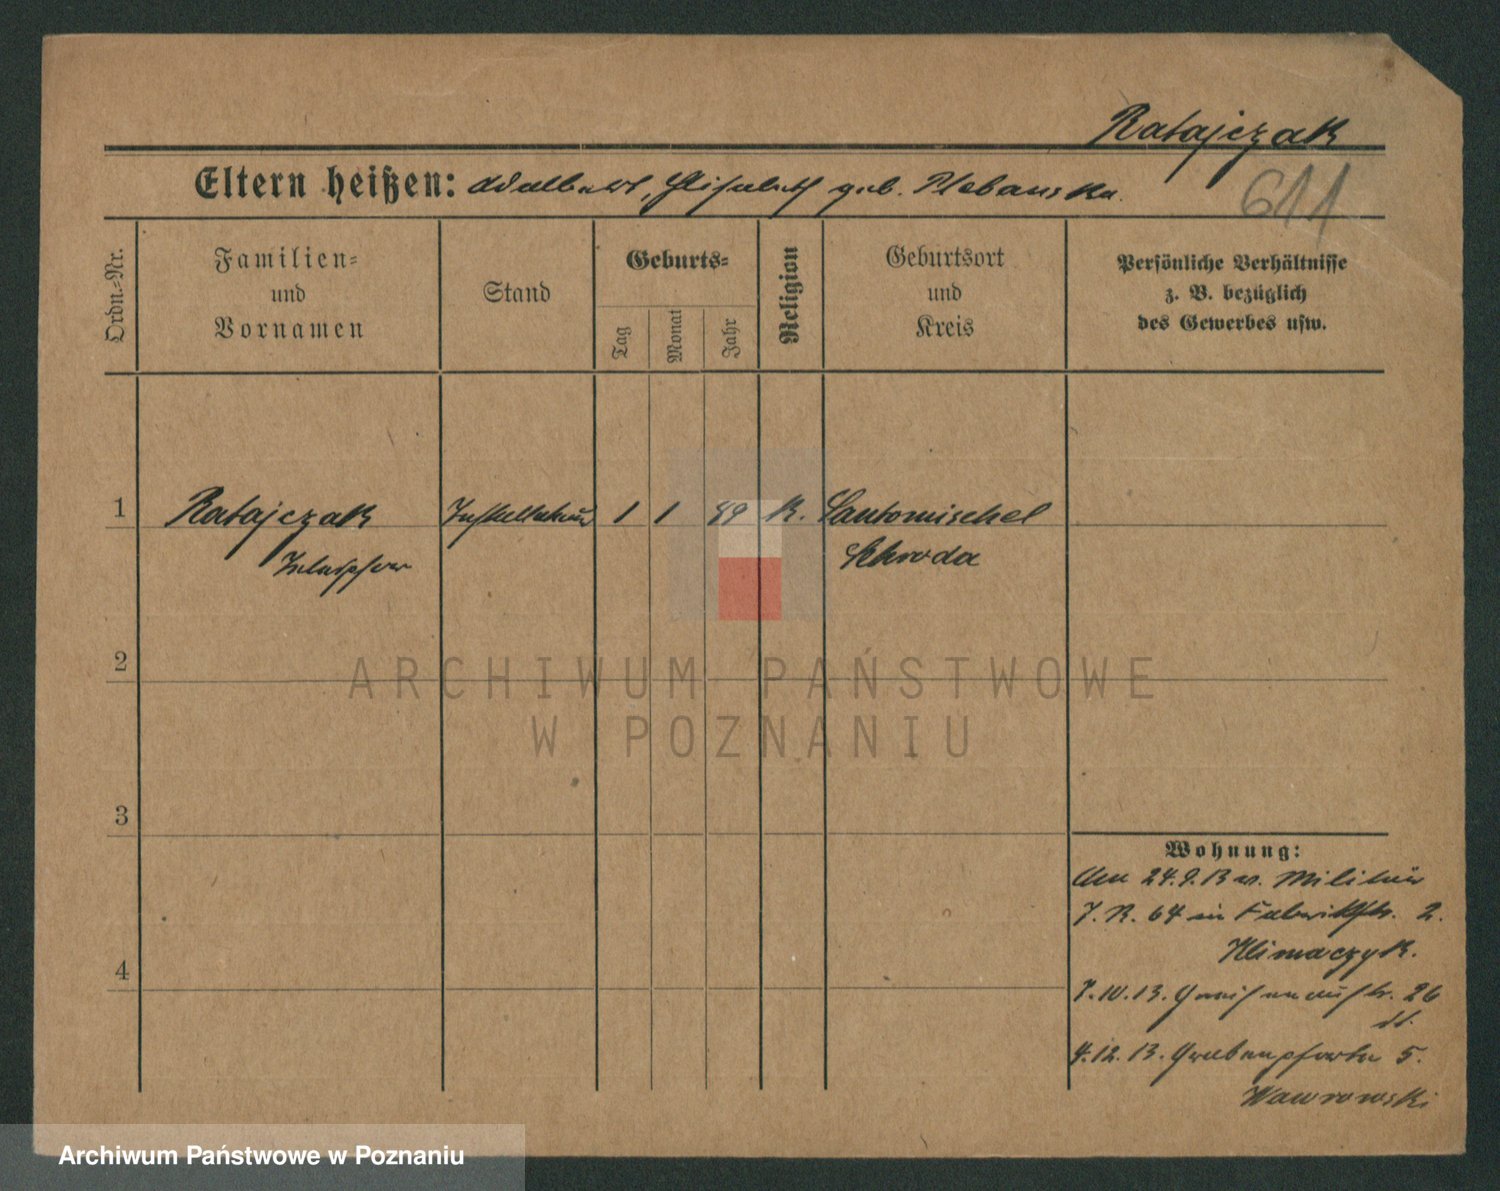 Ratajczak
611
Eltern heißen: Adalbert, Elisabeth geb. Plebanska.
Ordn.-Nr.
Familien-
und
Vornamen
Stand
Geburts-
Tag
Monat
Jahr
Religion
Geburtsort
und
Kreis
Persönliche Verhältnisse
z. B. bezüglich
des Gewerbes usw.
1
Ratajczak 1 1 89 K. Santomischel
Schroda
2
3
4
Wohnung:
24.9.13 v. Militär
J. R. 64 in Fabrikstr. 2.
Klimaczyk.
7.10.13. 26
4.12.13. Grabenpforte 5.
Wawrowski
ARCHIWUM PAŃSTWOWE
W POZNANIU
Archiwum Państwowe w Poznaniu